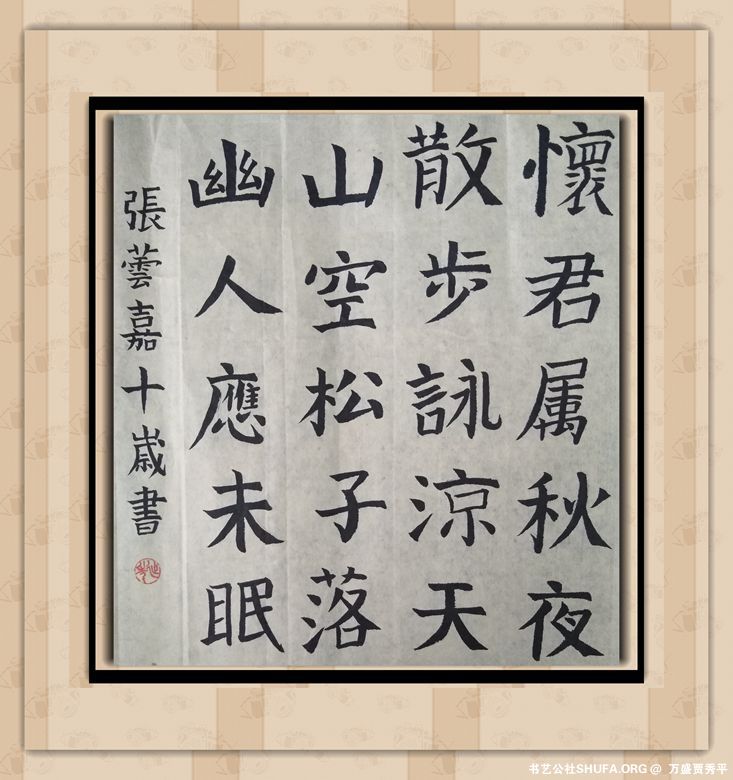 懷君属秋夜
散步詠涼天
山空松子落
幽人應未眠
張蕓嘉十嵗書
书艺公社SHUFA.ORG @ 万盛贾秀平